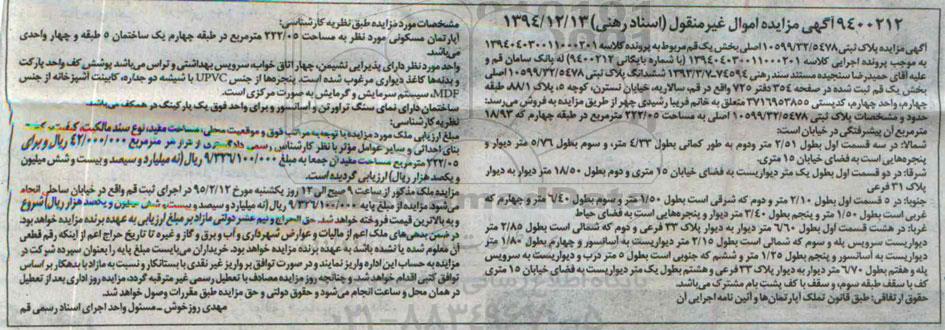 ۹۴۰۰۲۱۲ آگهی مزایده اموال غیر منقول (اسناد رهنی) ۱۳۹۴/۱۲/۱۳
آگهی مزایده پلاک ثبتی ۱۰۵۹۹/۳۲/۵۴۷۸ اصلی بخش یک قم مربوط به پرونده کلاسه ۱۳۹۴۰۴۰۳۰۰۱۱۰۰۰۳۰۱
به موجب پرونده اجرایی کلاسه ۱۳۹۴۰۴۰۳۰۰۱۱۰۰۰۳۰۱ (با شماره بایگانی ۹۴۰۰۲۱۲) له بانک سامان قم و
علیه آقای حمیدرضا سنجیده مستند سند رهنی ۷۴۵۹۴-۱۳۹۳/۳/۷ ششدانگ پلاک ثبتی ۱۰۵۹۹/۳۲/۵۴۷۸ اصلی
بخش یک قم ثبت شده در صفحه ۳۵۴ دفتر ۷۲۵ واقع در قم، سالاریه، خیابان نسترن، کوچه ۵، پلاک ۸۸/۱، طبقه
چهارم، واحد چهارم، کدپستی ۳۷۱۶۹۵۳۸۵۵ متعلق به خانم فریبا رشیدی چهر از طریق مزایده به فروش می‌رسد:
حدود و مشخصات پلاک ثبتی ۱۰۵۹۹/۳۲/۵۴۷۸ اصلی به مساحت ۲۲۲/۰۵ مترمربع در طبقه چهارم که ۱۸/۹۳
مترمربع آن پیشرفتگی در خیابان است:
شمالا: در سه قسمت اول بطول ۲/۵۱ متر ودوم به طور کمانی بطول ۴/۳۳ متر، و سوم بطول ۵/۷۶ متر دیوار و
پنجره‌هایی است به فضای خیابان ۱۵ متری.
شرقا: در دو قسمت اول بطول یک متر دیواریست به فضای خیابان ۱۵ متری و دوم بطول ۱۸/۵۰ متر دیوار به دیوار
پلاک ۳۱ فرعی
جنوبا: در ۵ قسمت اول بطول ۲/۱۰ متر و دوم که شرقی است بطول ۱/۵۰ متر و سوم بطول ۶/۴۰ متر و چهارم که
غربی است بطول ۱/۵۰ متر و پنجم بطول ۲/۴۰ متر دیوار و پنجره‌هایی است به فضای حیاط
غربا: در هشت قسمت اول بطول ۶/۶۰ متر دیوار به دیوار پلاک ۳۳ فرعی و دوم که شمالی است بطول ۲/۸۵ متر
دیواریست سرویس پله و سوم که شمالی است بطول ۲/۱۵ متر دیواریست به آسانسور و چهارم بطول ۱/۸۰ متر
دیواریست به آسانسور و پنجم بطول ۱/۲۵ متر و ششم که جنوبی است بطول ۵ متر درب و دیواریست به سرویس
پله و هفتم بطول ۶/۷۰ متر دیوار به دیوار پلاک ۳۳ فرعی و هشتم بطول یک متر دیواریست به فضای خیابان ۱۵ متری
کف با سقف طبقه سوم، و سقف با کف پشت بام مشترک می‌باشد.
حقوق ارتفاقی: طبق قانون تملک آپارتمان‌ها و آئین نامه اجرایی آن
مشخصات مورد مزایده طبق نظریه کارشناسی:
آپارتمان مسکونی مورد نظر به مساحت ۲۲۲/۰۵ مترمربع در طبقه چهارم یک ساختمان ۵ طبقه و چهار واحدی
می‌باشد.
واحد مورد نظر دارای پذیرایی نشیمن، چهار اتاق خواب، سرویس بهداشتی و تراس می‌باشد پوشش کف واحد پارکت
و بدنه‌ها کاغذ دیواری مرغوب شده است. پنجره‌ها از جنس UPVC با شیشه دو جداره، کابینت آشپزخانه از جنس
MDF، سیستم سرمایش و گرمایش به صورت مرکزی است.
ساختمان دارای نمای سنگ تراورتن و آسانسور و برای واحد فوق یک پارکینگ در همکف می‌باشد.
نظریه کارشناسی:
مبلغ ارزیابی ملک مورد مزایده با توجه به مراتب فوق و موقعیت محلی، مساحت مفید، نوع سند مالکیت، کیفیت
بنای احداثی و سایر عوامل مؤثر با نظر کارشناس رسمی دادگستری از قرار هر مترمربع ۴۲/۰۰۰/۰۰۰ ریال و برای
۲۲۲/۰۵ مترمربع مساحت مفید آن جمعا به مبلغ ۹/۳۲۶/۱۰۰/۰۰۰ ریال (نه میلیارد و سیصد و بیست و شش میلیون
و یکصد هزار ریال) ارزیابی گردیده است.
مزایده ملک مذکور از ساعت ۹ صبح الی ۱۲ روز یکشنبه مورخ ۹۵/۲/۱۲ در اجرای ثبت قم واقع در خیابان ساحلی انجام
می‌شود مزایده از مبلغ پایه ۹/۳۲۶/۱۰۰/۰۰۰ ریال (نه میلیارد و سیصد و بیست و شش میلیون و یکصد هزار ریال) شروع
و به بالاترین قیمت فروخته خواهد شد. حق الحراج و نیم عشر دولتی مازاد بر مبلغ ارزیابی به عهده برنده مزایده خواهد بود
در ضمن بدهی‌های ملک اعم از مالیات و عوارض شهرداری و آب و برق و گاز و غیره تا تاریخ حراج اعم از اینکه رقم قطعی
آن معلوم شده یا نشده باشد به عهده برنده مزایده خواهد بود. خریداران می‌بایست مبلغ پایه را بعنوان سپرده شرکت در
مزایده به حساب این اداره واریز نمایند و در صورت توافق بر واریز غیر نقدی با بستانکار و نسبت به مازاد با بدهکار بر اساس
توافق کتبی اقدام خواهد شد. و چنانچه روز مزایده مصادف با تعطیل رسمی غیر مترقبه گردد، مزایده روز اداری بعد از تعطیل
در همان محل و ساعت انجام می‌شود و حقوق دولتی و حق مزایده طبق مقررات وصول خواهد شد.
مهدی روزخوش - مسئول واحد اجرای اسناد رسمی قم